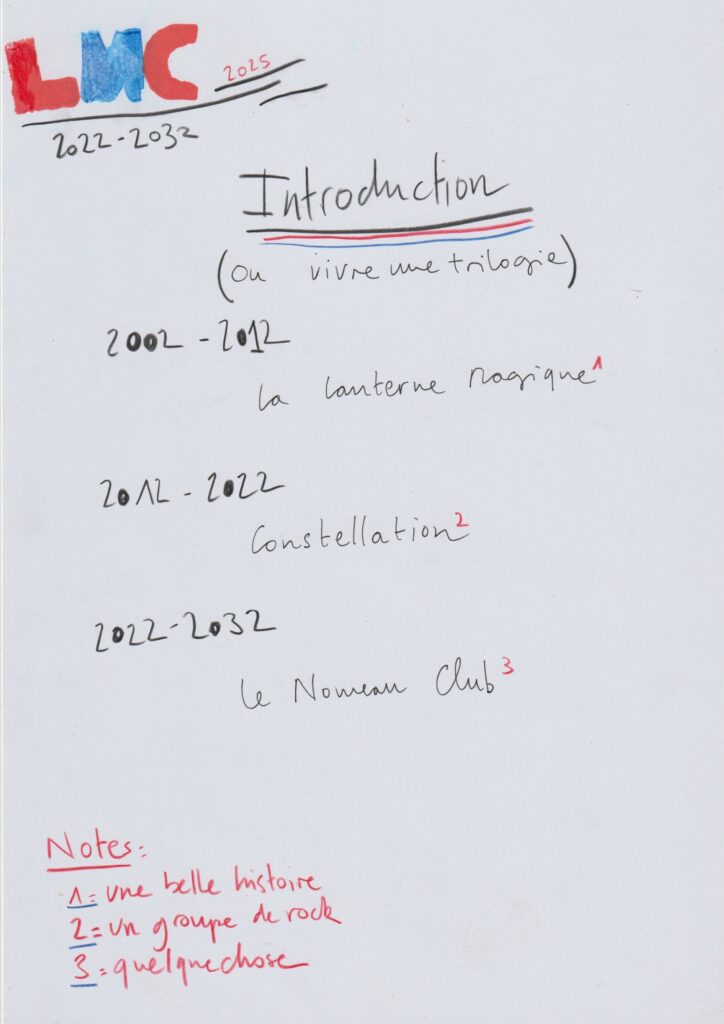 LMC 2025
2022-2032
Introduction
(ou vivre une trilogie)
2002 - 2012
la lanterne magique¹
2012 - 2022
Constellation²
2022-2032
le Nouveau Club³
Notes:
1= une belle histoire
2= un groupe de rock
3= quelque chose